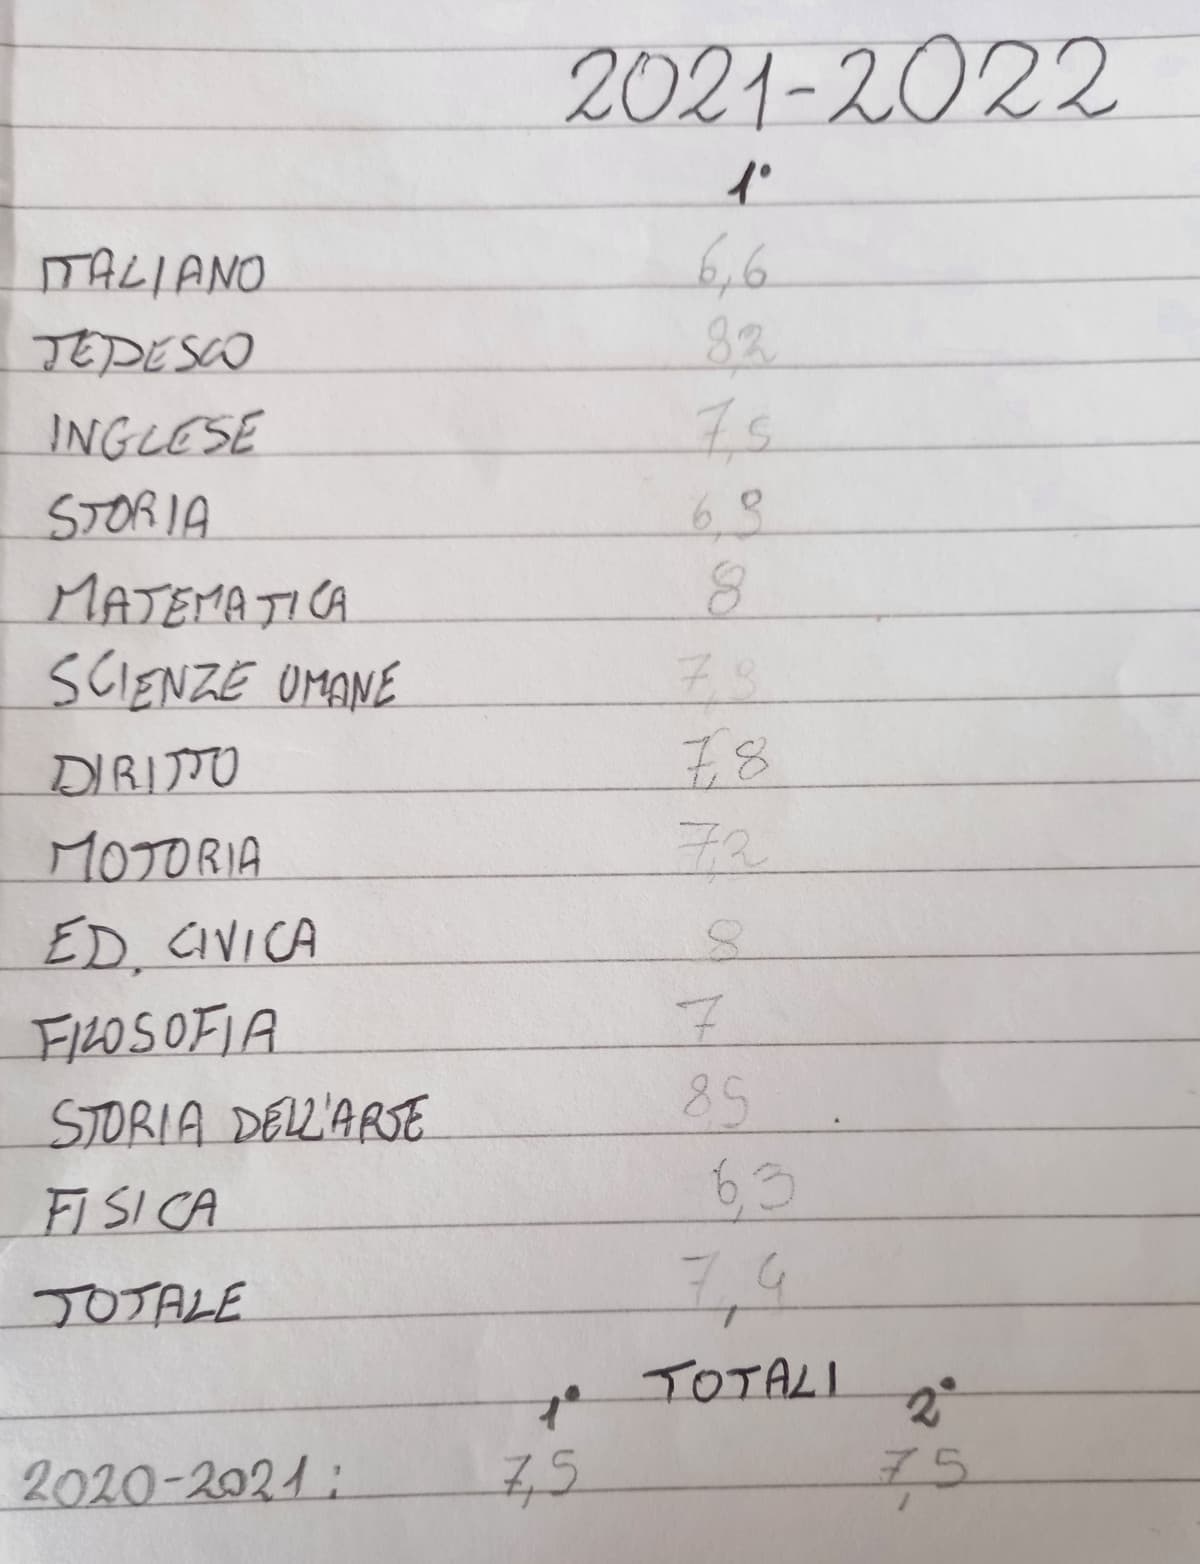 2021-2022
1°
ITALIANO 6,6
TEDESCO 8,2
INGLESE 7,5
STORIA 6,9
MATEMATICA 8
SCIENZE UMANE 7,9
DIRITTO 7,8
MOTORIA 7,2
ED. CIVICA 8
FILOSOFIA 7
STORIA DELL'ARTE 8,5
FISICA 6,3
TOTALE 7,4
TOTALI
1° 2°
2020-2021: 7,5 7,5